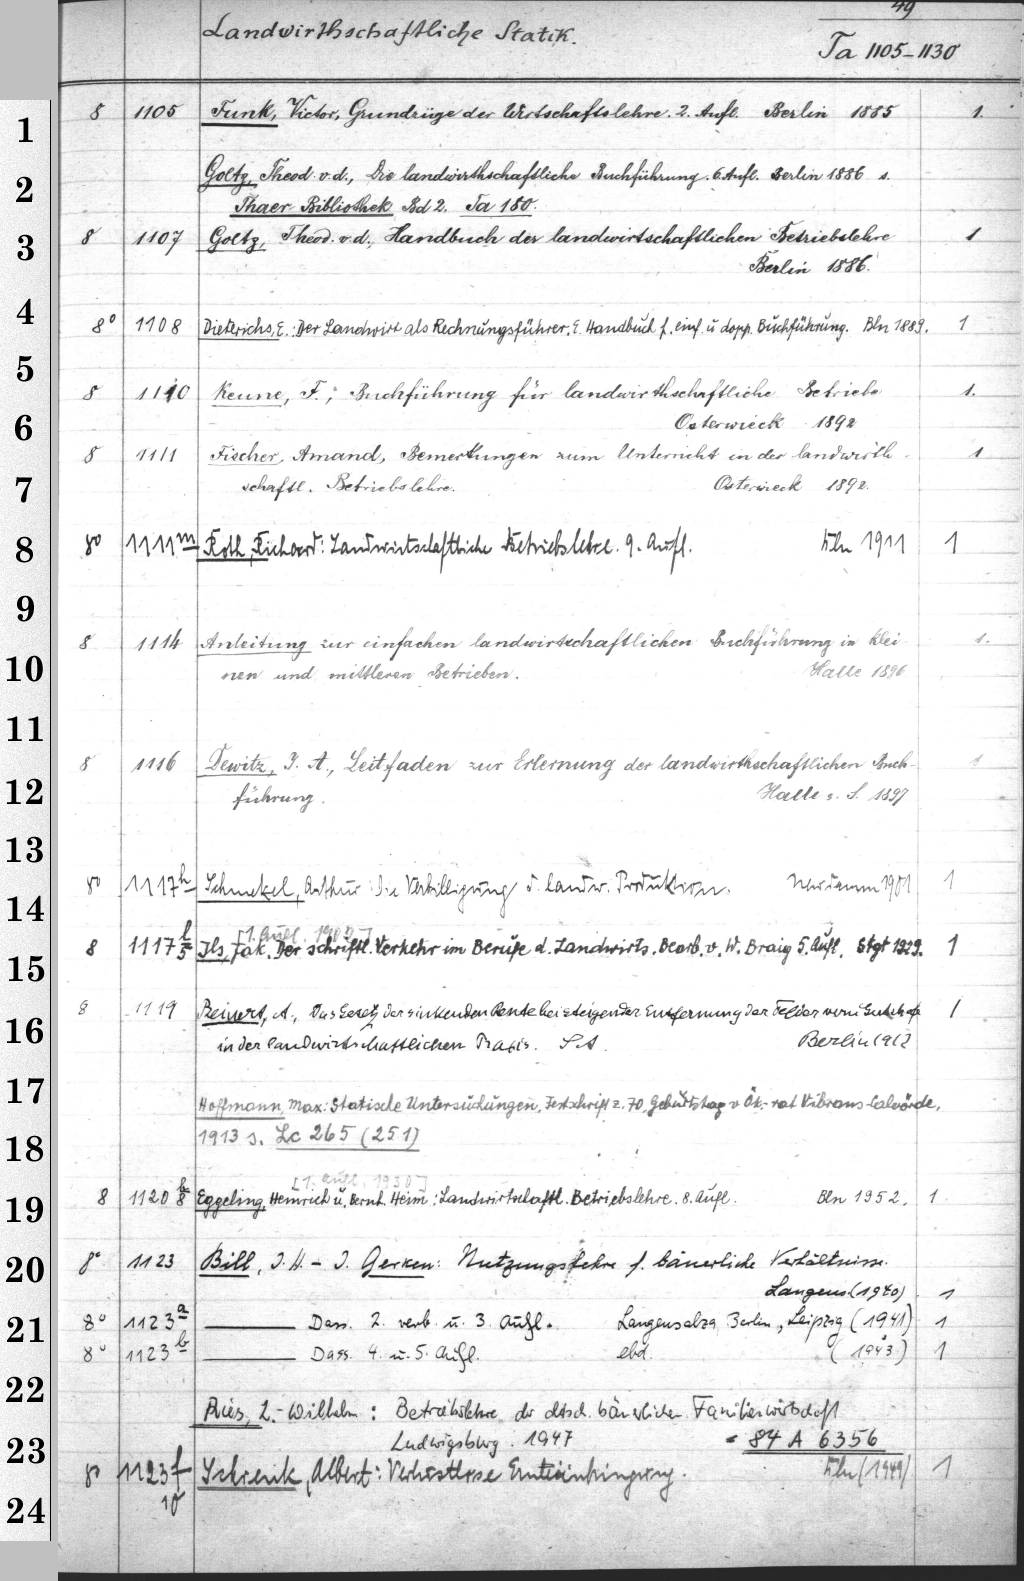 49
Landwirthschaftliche Statik.
Ta 1105-1130
1
8 1105 Funk, Victor, Grundzüge der Wirtschaftslehre. 2. Aufl. Berlin 1885 1.
2
Goltz, Theod. v. d., Die landwirthschaftliche Buchführung. 6. Aufl. Berlin 1886 s.
Thaer Bibliothek Bd 2. Ta 180.
3
8 1107 Goltz, Theod. v. d., Handbuch der landwirtschaftlichen Betriebslehre 1
Berlin 1886.
4
8° 1108 Dieterichs, E.: Der Landwirt als Rechnungsführer. E. Handbuch f. einf. u dopp. Buchführung. Bln 1889. 1
5
8 1110 Keune, F.; Buchführung für landwirthschaftliche Betriebe 1.
6
Osterwieck 1892
8 1111 Fischer, Amand, Bemerkungen zum Unterricht in der landwirth- 1
7
schaftl. Betriebslehre. Osterwieck 1892.
8
8° 1111m Roth, Richard: Landwirtschaftliche Betriebslehre. 9. Aufl. Bln 1911 1
9
8 1114 Anleitung zur einfachen landwirtschaftlichen Buchführung in klei 1.
10
nen und mittleren Betrieben. Halle 1896
11
8 1116 Dewitz, J. A., Leitfaden zur Erlernung der landwirthschaftlichen Buch- 1
12
führung. Halle a. S. 1897
13
8° 1117h Schmekel, Arthur: Die Verbilligung d. landw. Produktion. Neudamm 1901 1
14
[1. Aufl. 1907]
8 1117 l/5 Ils, Jak. Der schriftl. Verkehr im Berufe d. Landwirts. Bearb. v. W. Braig 5. Aufl. Stgt 1929. 1
15
8 1119 Reinert, A., Das Gesetz der sinkenden Rente bei steigender Entfernung der Felder vom Gutshofe 1
16
in der landwirtschaftlichen Praxis. SA Berlin 1912
17
Hoffmann, Max: Statische Untersuchungen, Festschrift z. 70. Geburtstag v Ök.-rat Vibrans-Calvörde,
18
1913 s. Lc 265 (251)
[1. Aufl. 1930]
19
8 1120 h/8 Eggeling, Heinrich u. Bernh. Heim: Landwirtschaftl. Betriebslehre. 8. Aufl. Bln 1952. 1
20
8° 1123 Bill, J. H. - J. Gerken: Nutzungslehre f. bäuerliche Verhältnisse.
Langens. (1940) 1
21
8° 1123a Dass. 2. verb. u. 3. Aufl. Langensalza, Berlin, Leipzig (1941) 1
8° 1123b Dass. 4. u. 5. Aufl. ebd. (1943) 1
22
Ries, L.-Wilhelm: Betriebslehre der dtsch. bäuerlichen Familienwirtschaft
23
Ludwigsburg. 1947 = 84 A 6356
8° 1123 f/10 Schrenk, Albert: Verlustlose Ernteeinbringung. Bln (1949) 1
24